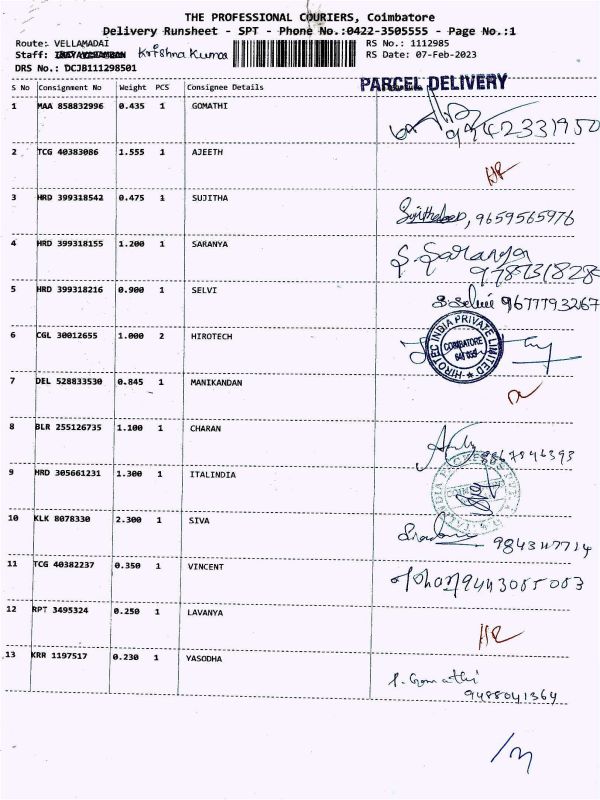 THE PROFESSIONAL COURIERS, Coimbatore
Delivery Runsheet - SPT - Phone No.:0422-3505555 - Page No.:1
Route: VELLAMADAI RS No.: 1112985
Staff: Krishna Kumar RS Date: 07-Feb-2023
DRS No.: DCJB111298501
PARCEL DELIVERY
S No Consignment No Weight PCS Consignee Details
1 MAA 858832996 0.435 1 GOMATHI
2 TCG 40383086 1.555 1 AJEETH
3 HRD 399318542 0.475 1 SUJITHA , 9659565976
4 HRD 399318155 1.200 1 SARANYA S. Saranya
5 HRD 399318216 0.900 1 SELVI S. Selvi 9677793267
6 CGL 30012655 1.000 2 HIROTECH
HIROTEC INDIA PRIVATE LIMITED
COIMBATORE
7 DEL 528833530 0.845 1 MANIKANDAN
8 BLR 255126735 1.100 1 CHARAN
9 HRD 305661231 1.300 1 ITALINDIA
10 KLK 8078330 2.300 1 SIVA
11 TCG 40382237 0.350 1 VINCENT
12 RPT 3495324 0.250 1 LAVANYA
13 KRR 1197517 0.230 1 YASODHA P. Gomathi
9488041364